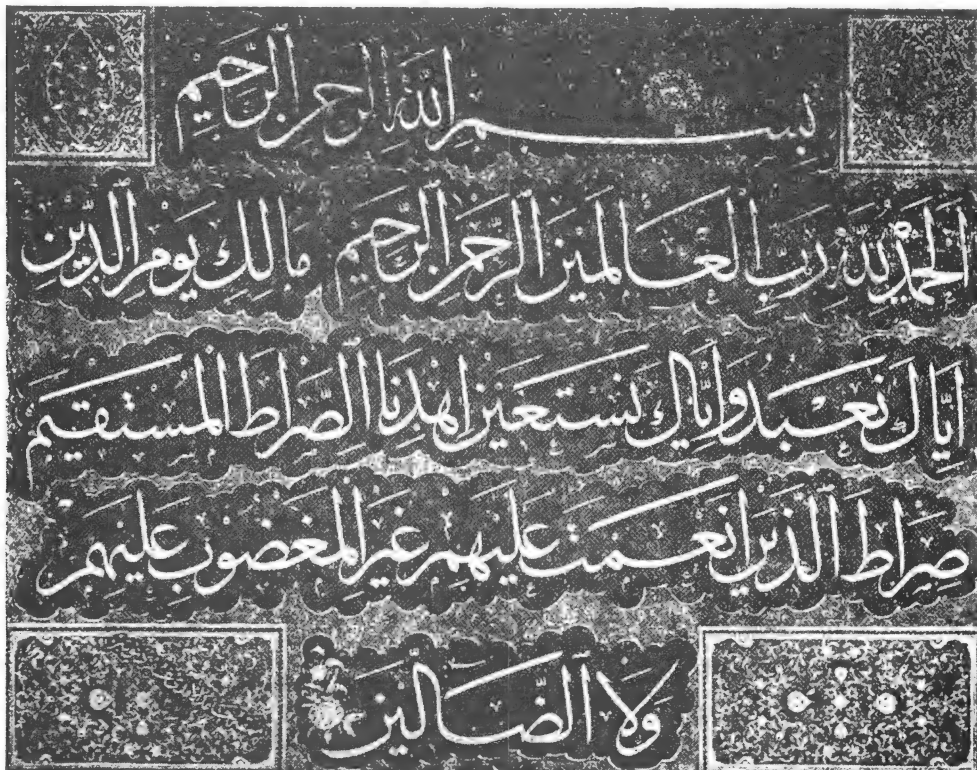 بِسْمِ اللهِ الرَّحْمٰنِ الرَّحِيْمِ
اَلْحَمْدُ لِلّٰهِ رَبِّ الْعَالَمِيْنَ الرَّحْمٰنِ الرَّحِيْمِ مَالِكِ يَوْمِ الدِّيْنِ
اِيَّاكَ نَعْبُدُ وَاِيَّاكَ نَسْتَعِيْنُ اِهْدِنَا الصِّرَاطَ الْمُسْتَقِيْمَ
صِرَاطَ الَّذِيْنَ اَنْعَمْتَ عَلَيْهِمْ غَيْرِ الْمَغْضُوْبِ عَلَيْهِمْ
وَلَا الضَّالِّيْنَ